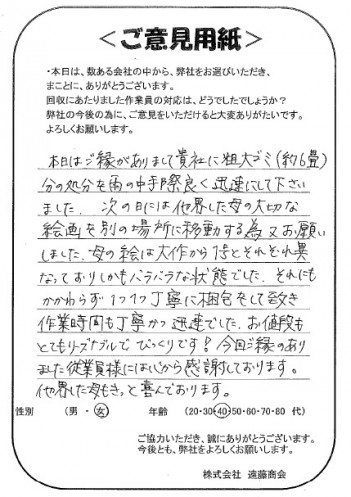 ＜ご意見用紙＞
・本日は、数ある会社の中から、弊社をお選びいただき、
まことに、ありがとうございます。
回収にあたりました作業員の対応は、どうでしたでしょうか？
弊社の今後の為に、ご意見をいただけると大変ありがたいです。
よろしくお願いします。
本日はご縁がありまして貴社に粗大ゴミ(約6畳)
分の処分を雨の中手際良く迅速にして下さい
ました。次の日には他界した母の大切な
絵画を別の場所に移動する為又お願い
しました。母の絵は大作から1点とそれぞれ異
なっておりしかもバラバラな状態でした。それにも
かかわらず1つ1つ丁寧に梱包をして頂き
作業時間も丁寧かつ迅速でした。お値段も
とてもリーズナブルでびっくりです！今回ご縁のあり
ました従業員様には心から感謝しております。
他界した母もきっと喜んでおります。
性別 （男・女） 年齢 （20・30・40・50・60・70・80 代）
ご協力いただき、誠にありがとうございます。
今後とも、弊社をよろしくお願いします。
株式会社 遠藤商会